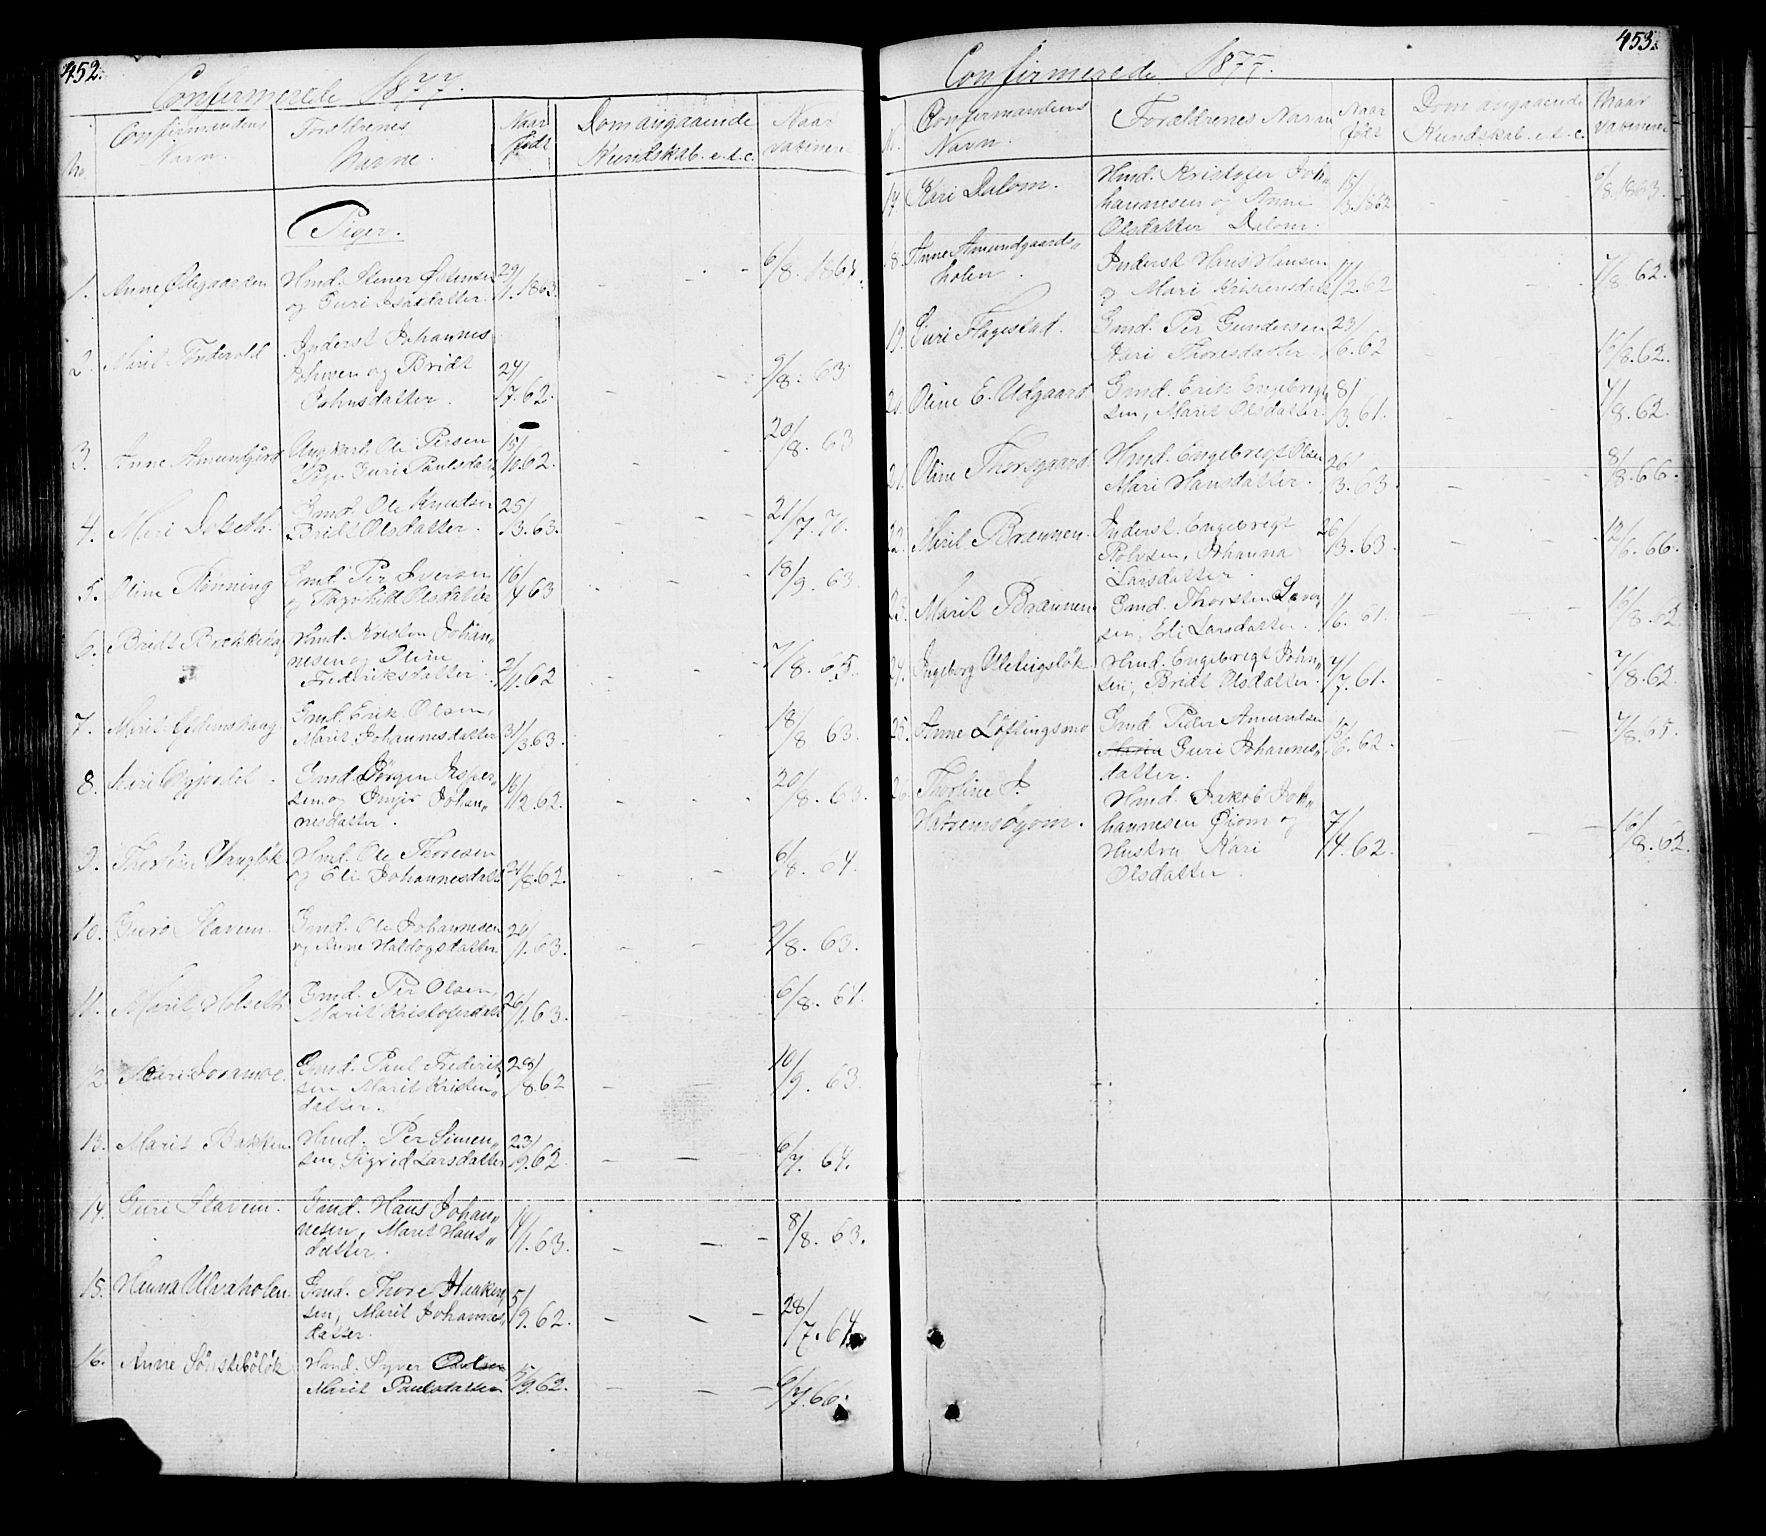 452.
Confirmerede 1877.
No
Confirmandens Navn.
Forældrenes Navne.
Naar Født
Dom angaaende Kundskab. e.t.c.
Naar vaxinere
Piger.
1. Anne Ødegaarden
Hmd. Stener Østensen
og Guri Isaksdatter.
29/1. 1863.
6/8. 186
2. Marit
Inderst Johannes
Johnsen og Bridt
Johnsdatter.
24/7. 62.
9/8. 63
3. Anne Amundgård
Ungkarl. Ole Persen
Pige Guri Paulsdatt
15/10. 62.
20/8. 63
4. Mari
Gmd. Ole Knudsen
Bridt Olsdatter.
25/3. 63.
21/7. 70.
5. Oline Rønning
Gmd. Per Iversen
og Ragnhild Olsdatter
16/4 63
18/9. 63
6. Bridt Brekken
Hmd. Kristen Johan„
nesen og Oline
Frederiksdatter.
2/11. 62
7/8. 65.
7. Marit
Gmd. Erik Olsen,
Marit Johannesdatter
31/3 63.
18/8 63.
8. Mari
Gmd. Jørgen Jesper„
sen og Johan„
nesdatter.
16/12. 62.
20/8. 63.
9. Thorine
Hmd. Ole Thoresen
og Eli Johannesdatt
21/8. 62.
6/8. 64.
10. Guro Stavem.
Gmd. Ole Johannesen
og Anne Haldogsdatter
29/1. 63.
9/8. 63.
11. Marit Holseth
Gmd. Per Olsen,
Marit Kristofersdatt
26/1. 63.
6/8. 64.
12. Mari Joramoe.
Gmd. Paul Frederik
sen Marit Kristen„
datter.
28/8. 62
10/9. 63.
13. Marit Bakken.
Hmd. Per Simen„
sen, Sigrid Larsdatter
23/9. 62.
6/7. 64.
14. Guri Stavem.
Gmd. Hans Johan„
nesen, Marit Hans„
datter.
14/1. 63.
8/8. 63.
15. Hanna Ulvaholen.
Gmd. Thore Haaken„
sen, Marit Johannes„
datter.
5/9. 62.
28/7. 64.
16. Anne Sønstebøløk
Hmd. Syver Paulsen
Marit Paulsdatter
15/9. 62.
6/7. 66.
453.
Confirmerede 1877.
N.
Confirmandens Navn.
Forældrenes Navne
Naar født
Dom angaaende Kundskab. e.t.c.
Naar Vaxinere
17. Kari Dalom.
Hmd. Kristofer Joh„
hannesen og Anne
Olsdatter Dalom.
15/3. 1862
6/8. 1863.
18. Anne Amundgaards„
holen.
Inderst Hans Hansen
og Mari Kristensdatt
17/2. 62
7/8 62.
19. Guri Flagestad.
Gmd. Per Gundersen
Kari Thoresdatter.
23/6. 62
16/8. 62.
20. Oline E. Udgaard
Gmd. Erik Engebregt
sen, Marit Olsdatter.
8/3. 61.
7/8. 62.
21. Oline Thorsgaard.
Hmd. Engebregt Olsen
Mari Hansdatter.
26/3. 63.
8/8. 66.
22. Marit Brænnen.
Inderst. Engebregt
Johanna
Larsdatter.
26/3. 63.
12/6. 66.
23. Marit Brænnen.
Gmd. Thorsten
sen, Eli Larsdatter.
1/6. 61.
16/8. 62
24. Ingeborg
Hmd. Engebregt John„
sen, Bridt Olsdatter.
4/7. 61.
7/8. 62.
25. Anne Løftingsmo
Gmd. Peder Amundsen
Guri Johannes„
datter.
15/6. 62.
7/8. 65.
26. Thorine J.
Hatremsøyom.
Hmd. Jakob Joh„
hannesen Øiom og
Hustru Kari
Olsdatter.
7/4. 62.
16/8. 62.